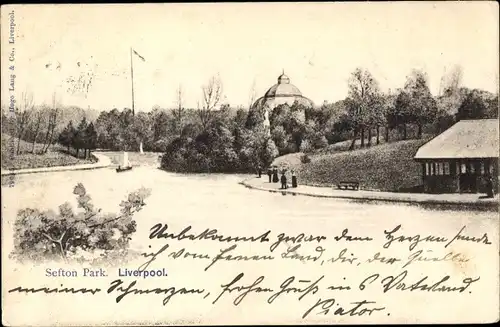 Hugo Lang & Co., Liverpool.
Sefton Park. Liverpool.
Unbekannt zwar dem Herzen, sende
ich vom fernen Land, dir, der Quelle
meiner Schmerzen, frohen Gruss ins Vaterland.
Piator.